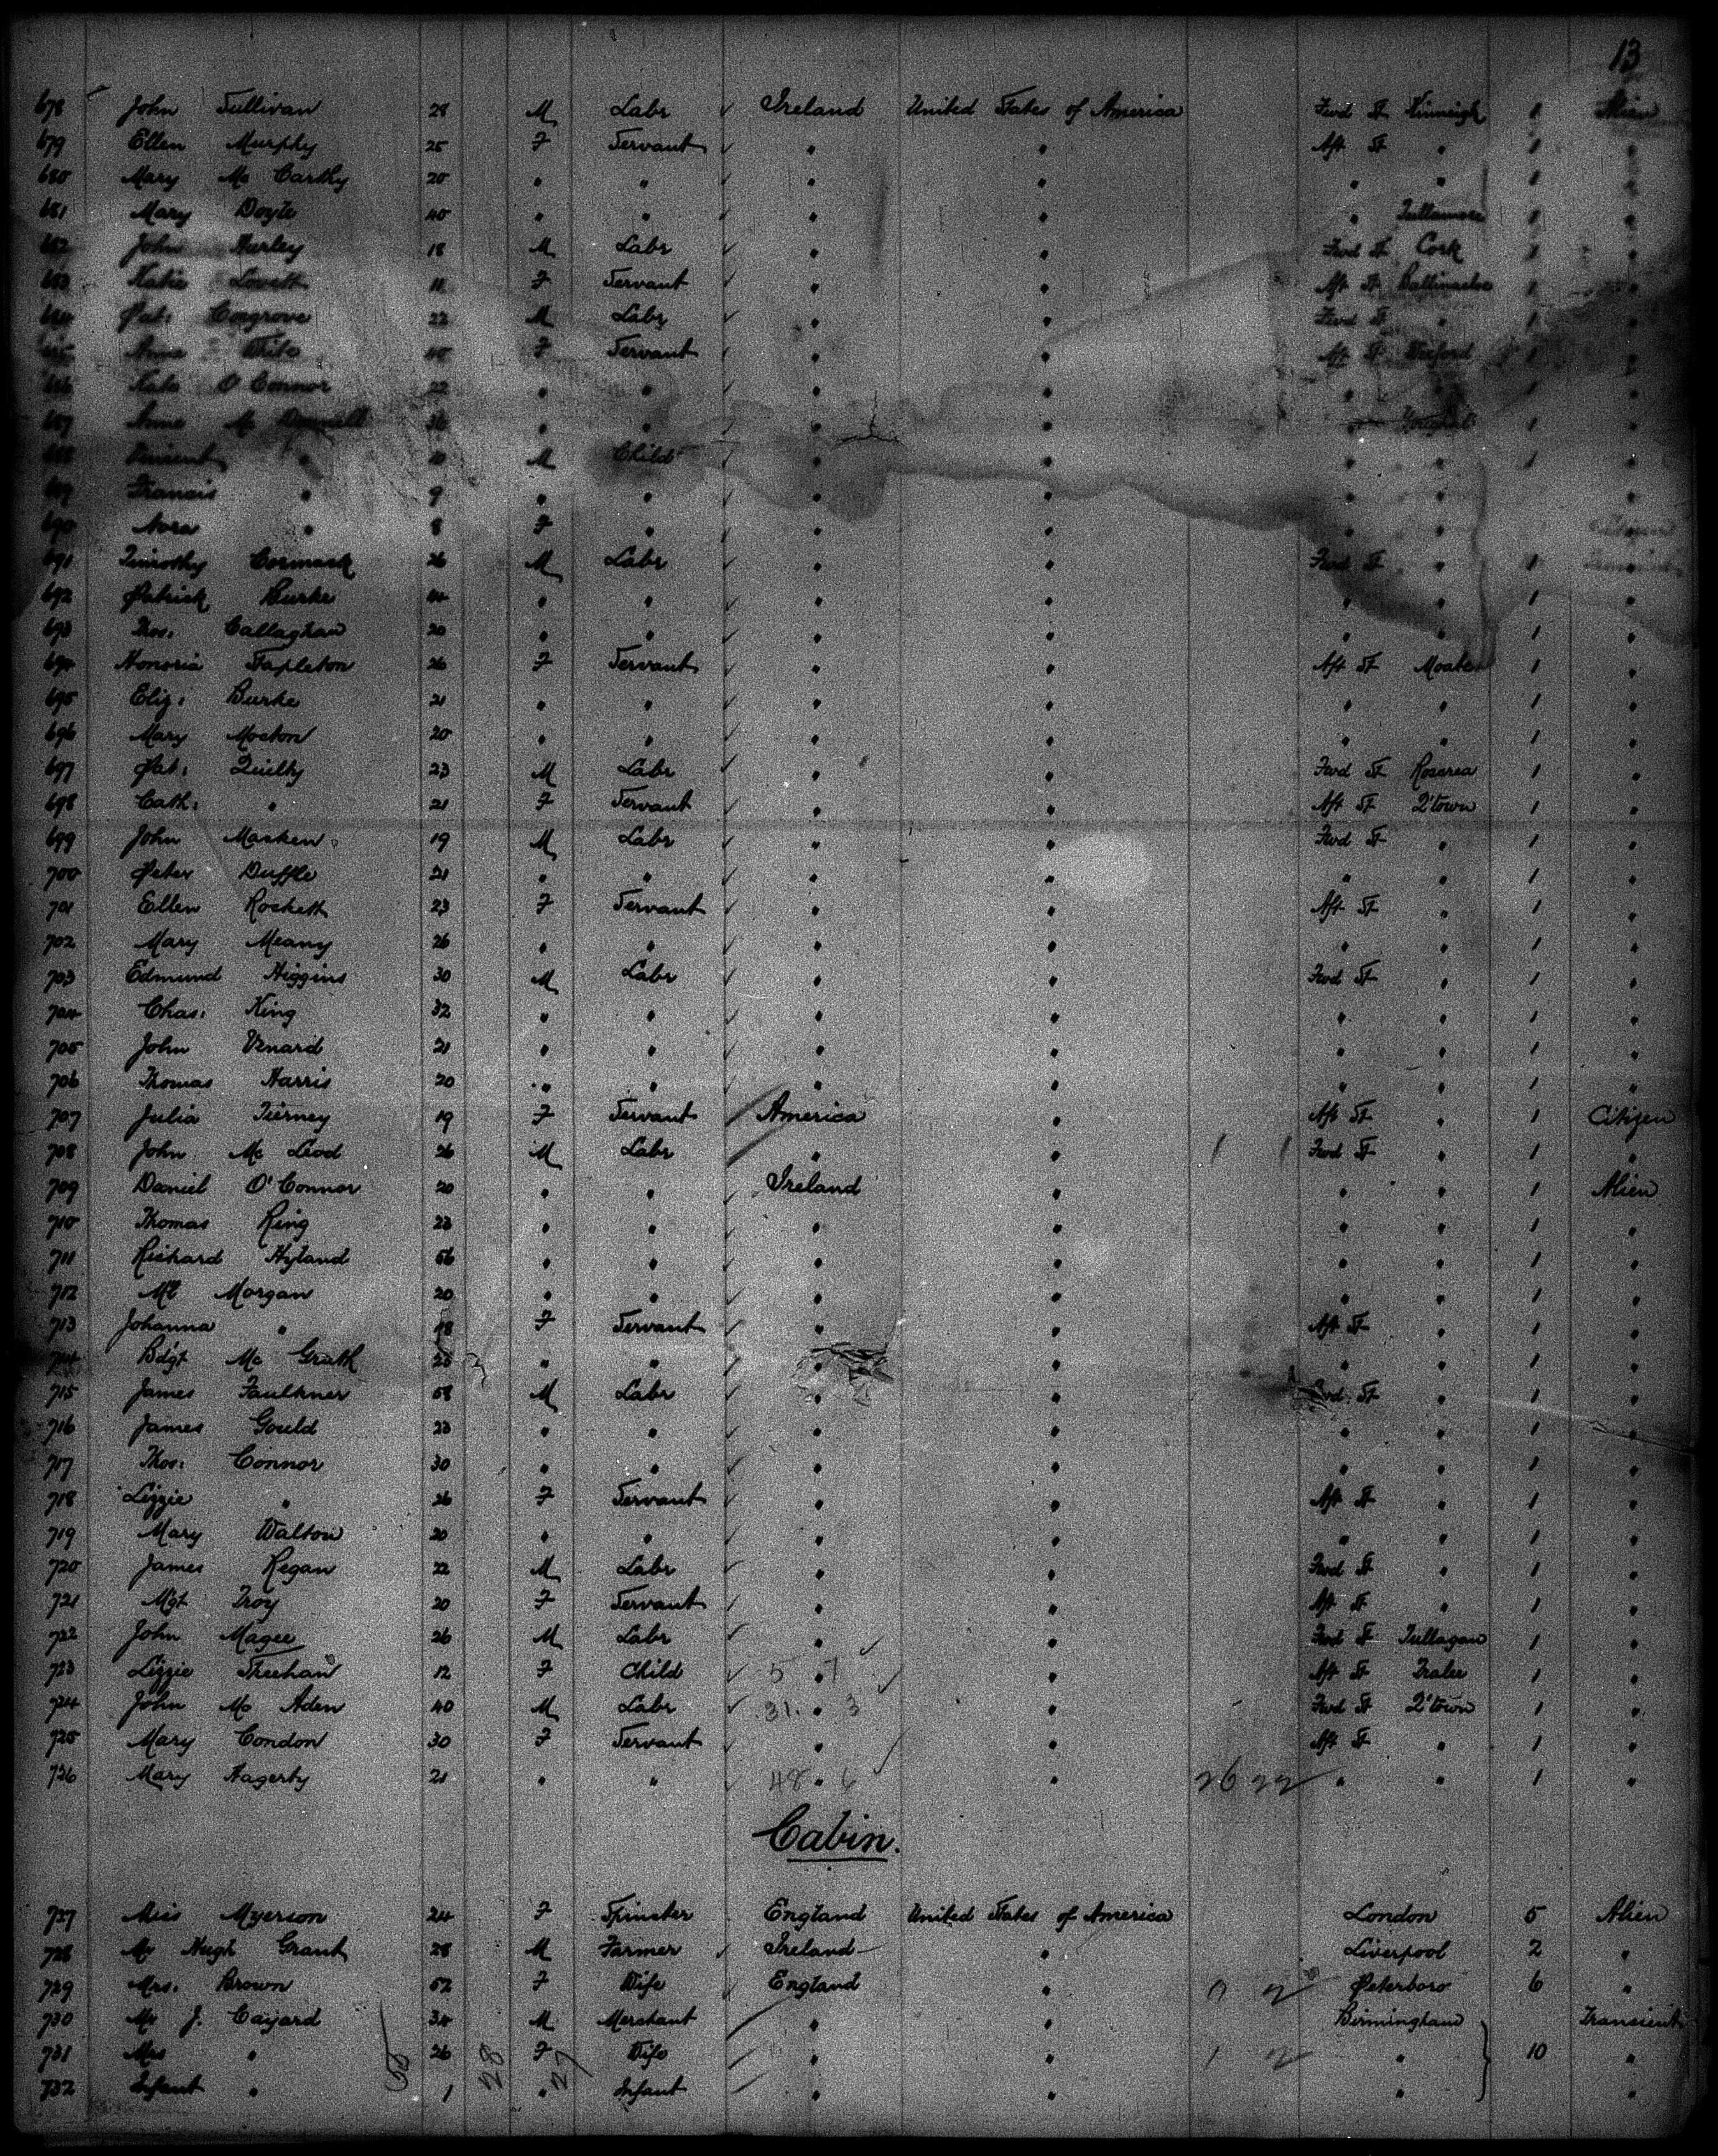 13
678 John Sullivan 28 M Labr Ireland United States of America Fwd St Kinneigh 1 Alien
679 Ellen Murphy 25 F Servant " " Aft St " 1 "
680 Mary Mc Carthy 20 " " " " " " 1 "
681 Mary Doyle 40 " " " " " Tullamore 1 "
682 John Hurley 18 M Labr " " Fwd St Cork 1 "
683 Katie Lovett 11 F Servant " " Aft St Ballinasloe 1 "
684 Pat: Cosgrove 22 M Labr " " Fwd St " 1 "
Anne White 40 F Servant " " Aft St Wexford 1 "
686 Kate O'Connor 22 " " " " " " 1 "
687 Anne Mc 36 " " " " " 1 "
688 Vincent " 10 M Child " " " " 1 "
689 Francis " 9 " " " " " " "
690 Nora " 8 F " " " " " Citizen
691 Timothy Cormack 26 M Labr " " Fwd St " 1
692 Patrick Burke " " " " " " 1 "
693 Thos. Callaghan 20 " " " " " " 1 "
694 Honoria Stapleton 26 F Servant " " Aft St Moate 1 "
695 Eliz: Burke 21 " " " " " " 1 "
696 Mary Mocton 20 " " " " " " 1 "
697 Pat: Quilty 23 M Labr " " Fwd St Roscrea 1 "
698 Cath: " 21 F Servant " " Aft St Q'town 1 "
699 John Macken 19 M Labr " " Fwd St " 1 "
700 Peter Duffle 21 " " " " " " 1 "
701 Ellen Rockett 23 F Servant " " Aft St " 1 "
702 Mary Meany 26 " " " " " " 1 "
703 Edmund Higgins 30 M Labr " " Fwd St " 1 "
704 Chas: King 32 " " " " " " 1 "
705 John Venard 21 " " " " " " 1 "
706 Thomas Harris 20 " " " " " " 1 "
707 Julia Tierney 19 F Servant America " Aft St " 1 Citizen
708 John Mc Leod 26 M Labr " " 1 1 Fwd St " 1 "
709 Daniel O'Connor 20 " " Ireland " " " 1 Alien
710 Thomas Ring 23 " " " " " " 1 "
711 Richard Hyland 56 " " " " " " 1 "
712 Ml Morgan 20 " " " " " " 1 "
713 Johanna " 18 F Servant " " Aft St " 1 "
714 Bdgt Mc Grath 25 " " " " " " 1 "
715 James Faulkner 58 M Labr " " Fwd St " 1 "
716 James Gould 23 " " " " " " 1 "
717 Thos: Connor 30 " " " " " " 1 "
718 Lizzie " 26 F Servant " " Aft St " 1 "
719 Mary Walton 20 " " " " " " 1 "
720 James Regan 22 M Labr " " Fwd St " 1 "
721 Mgt Troy 20 F Servant " " Aft St " 1 "
722 John Magee 26 M Labr " " Fwd St Tullagan 1 "
723 Lizzie Sheehan 12 F Child 5 " 7 " Aft St Tralee 1 "
724 John Mc Aden 40 M Labr 31. " 3 " Fwd St Q'town 1 "
725 Mary Condon 30 F Servant " " Aft St " 1 "
726 Mary Hagerty 21 " " 48 " 6 " 26 22 " " 1 "
Cabin.
727 Miss Myerson 24 F Spinster England United States of America London 5 Alien
728 Mr Hugh Grant 28 M Farmer Ireland " Liverpool 2 "
729 Mrs. Brown 52 F Wife England " Peterboro 6 "
730 Mr J. Cayard 34 M Merchant " " Birmingham Transient
731 Mrs " 26 F Wife " " " 10 "
732 Infant " 1 " Infant " " " "
28 27